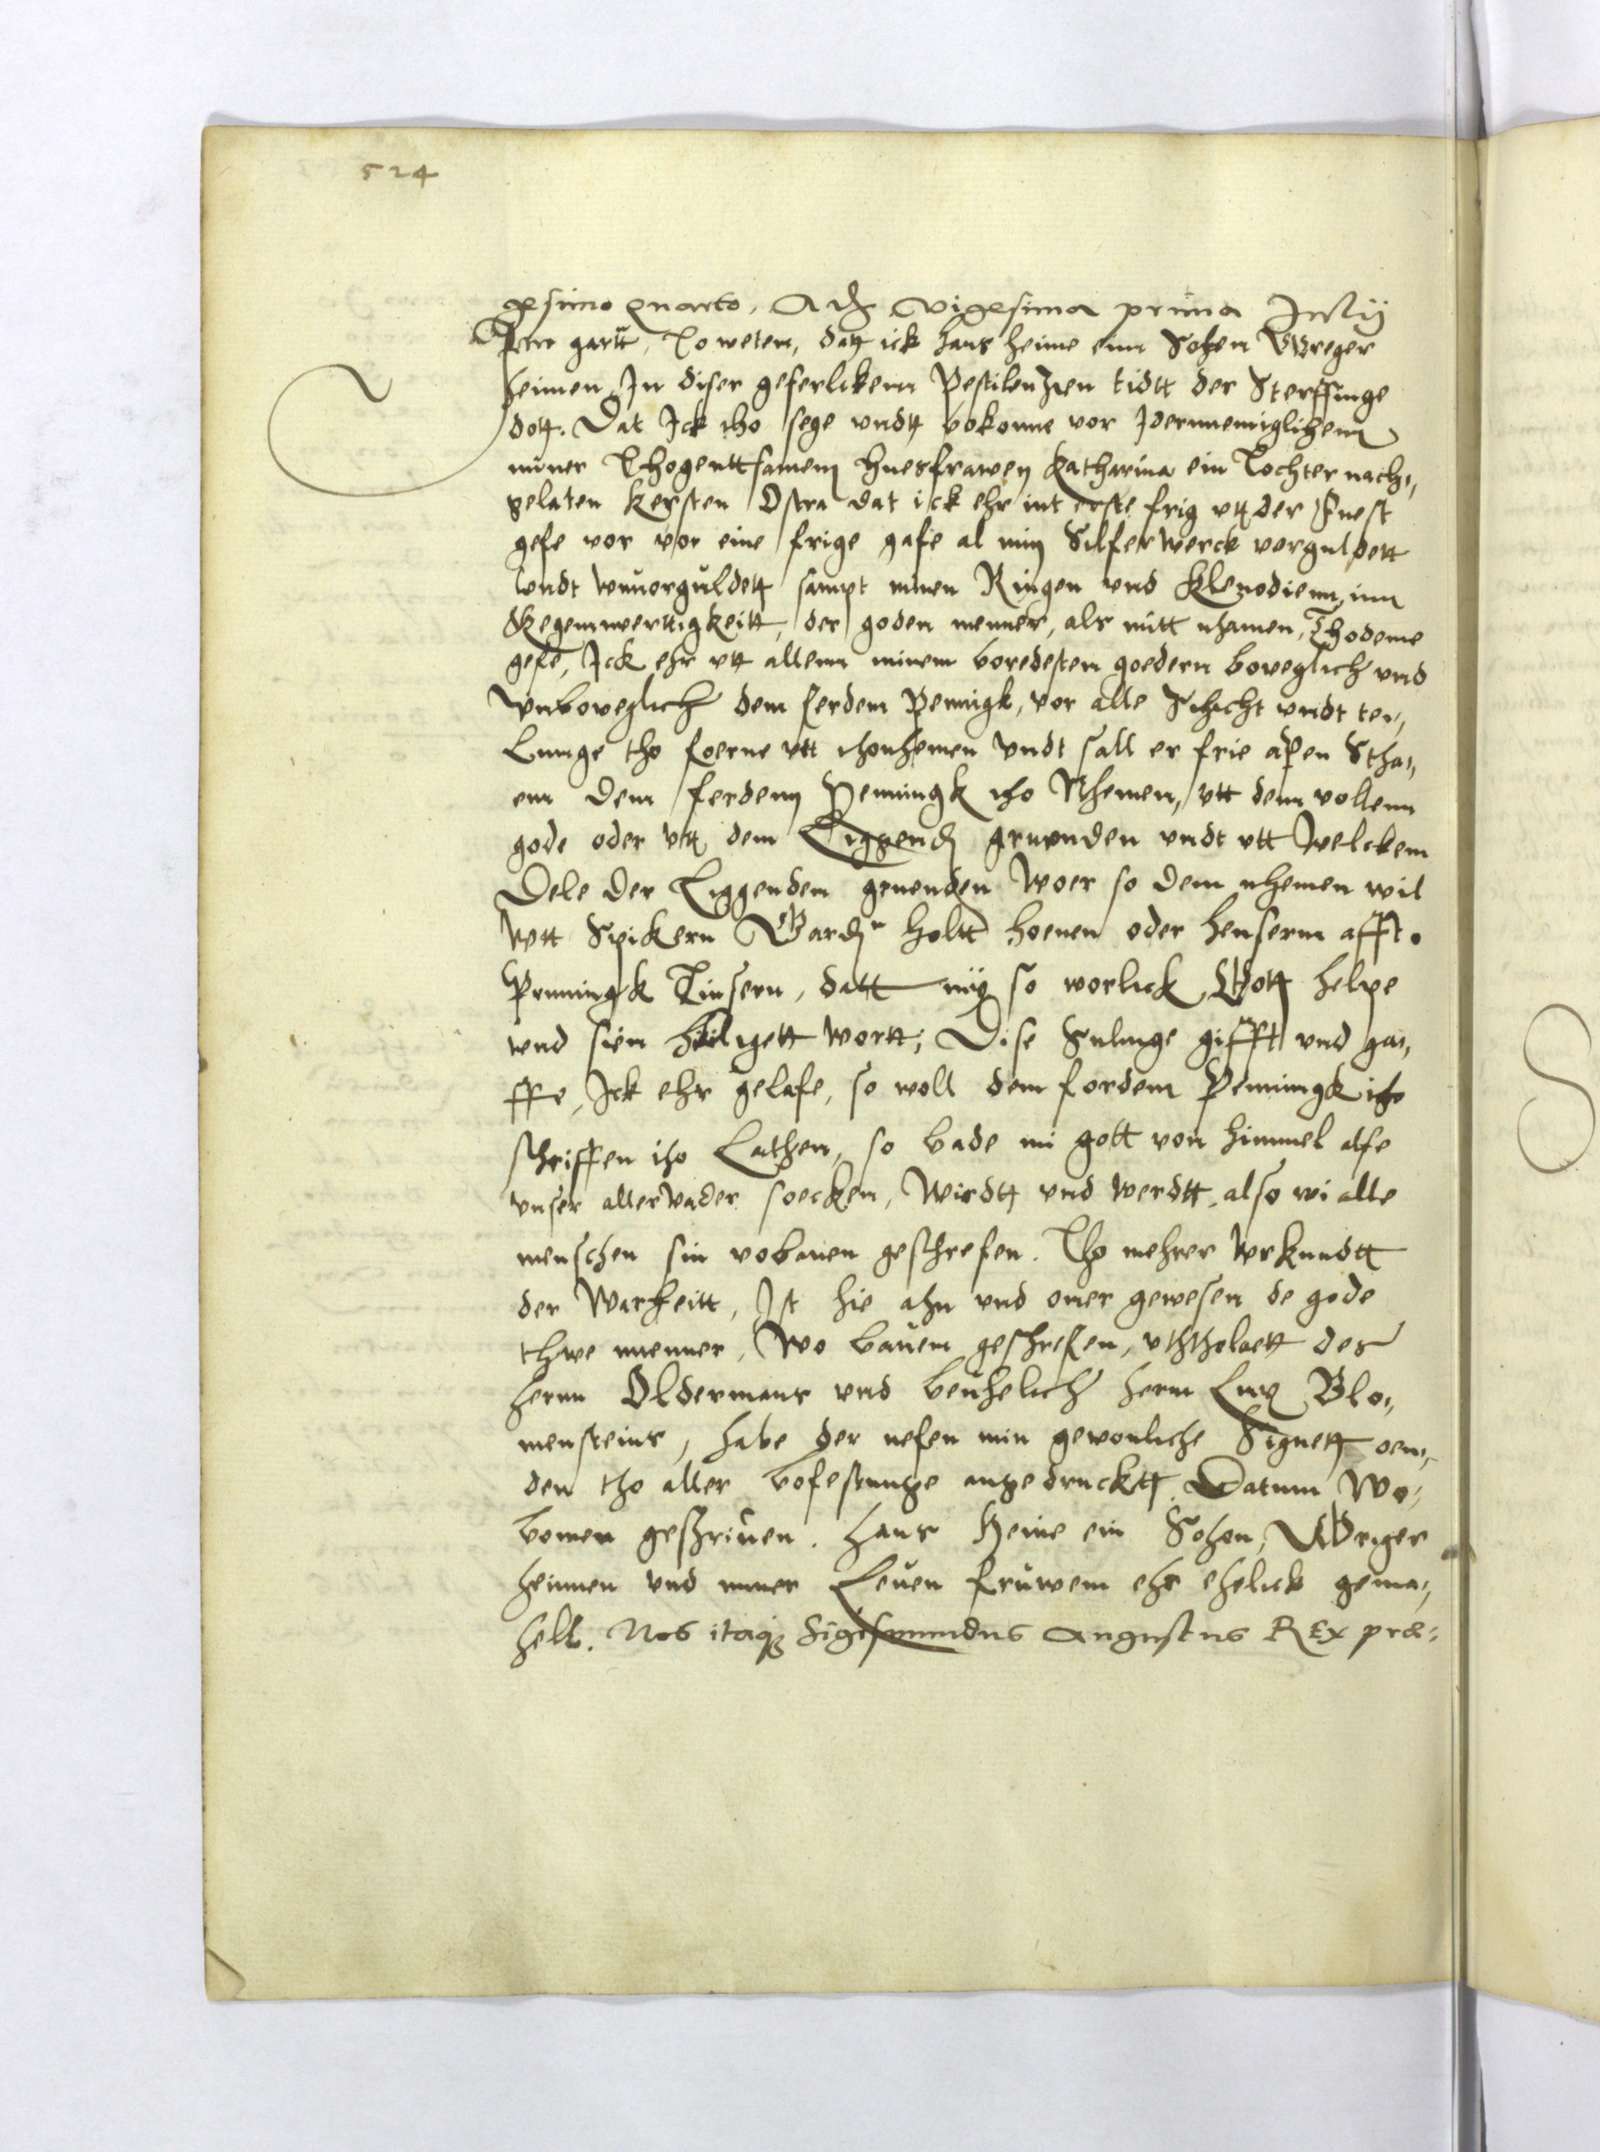 524
gesimo quarto, Adj vigesima prima Julij
gartt, to weten, datt ick hans heine enn Sohen Greger
heimen In diser geferlickenn Pestilenzien tidtt der Sterffinge
dott. Dat Ick tho sege vndtt bokonne vor Idermenniglichenn
miner Thogenttsamen Huesfrawen Katharina ein Tochter nach„
gelaten Kersten Ostra dat ick ehr int erste frig vtt der
gefe vor vor eine frige gafe al min Silferwerck verguldett
vndt vnuorguldett sampt minen Ringen vnd Klenodienn, inn
Kegennwerttigkeitt, der goden menner, als mitt nhamen, Thodeme
gefe, Ick ehr vtt allenn minem boredesten goedern boweglich vnd
vnboweglich dem ferdem Pennigk, vor alle Schicht vndt tei„
Lunge tho foerne vtt thonhemen vndt sall er frie apen Stha„
enn dem ferdem Penningk tho Nhemen, vtt dem vollenn
gode oder vtt dem Liggend gruunden vndt vtt welckem
Dele der Liggenden gruenden woer so dem nhemen wil
vtt Spickern Gard holtt hoeuen oder heuserm afft.
Penningk Zinsern, datt mij so worlick Gott helpe
vnd sien heiligett wortt; Dise Sulunge gifft vnd ga„
ffe, Ick ehr gelafe, so woll dem fordem Penningk tho
schriffen tho Lathen, so bade mi gott von himmel alse
vnser allervader soecken, Wirdtt vnd werdtt, also wi alle
menschen sin vobauen geschrefen. Tho mehrer vrkundtt
der Warheitt, Ist hie ahn vnd ouer gewesen de gode
thwe menner, Wo bauen geschrefen, vththolaett des
hernn Oldermans vnd benhelich herrn Blo„
mensteins, habe der nefen min gewonliche Signett oen„
den tho aller bofestunge angedrucktt. Datum Wo„
bowen geschriuen. Hans Heine ein Sohon, Griger
heimen vnd miner Leuen fruwem ehr ehelick gema„
hell. Nos itaq Sigismundus Augustus Rex præ„